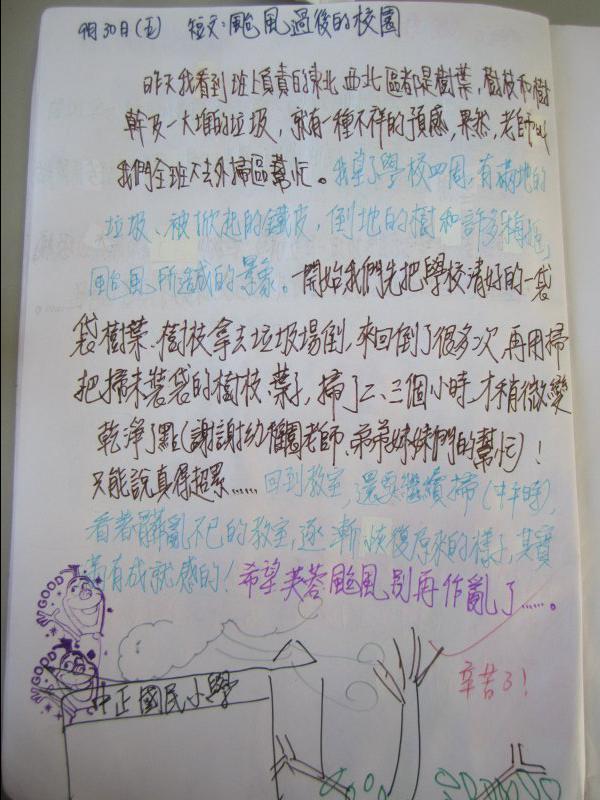 9月30日(五) 短文:颱風過後的校園
昨天我看到班上負責的東北、西北區都是樹葉,樹枝和樹
幹及一大堆的垃圾,就有一種不祥的預感,果然,老師叫
我們全班下去外掃區幫忙。我望了學校四周,有滿地的
垃圾、被掀起的鐵皮,倒地的樹和許多梅姬
颱風所造成的景象。一開始我們先把學校清好的一袋
袋樹葉、樹枝拿去垃圾場倒,來回倒了很多次,再用掃
把掃未裝袋的樹枝、葉子,掃了二、三個小時,才稍微變
乾淨了點(謝謝幼稚園老師、弟弟妹妹們的幫忙)!
只能說真得超累……回到教室,還要繼續掃(中午時),
看著髒亂不已的教室,逐漸恢復原來的樣子,其實
蠻有成就感的!希望芙蓉颱風別再作亂了……。
GOOD
GOOD
辛苦了!
中正國民小學